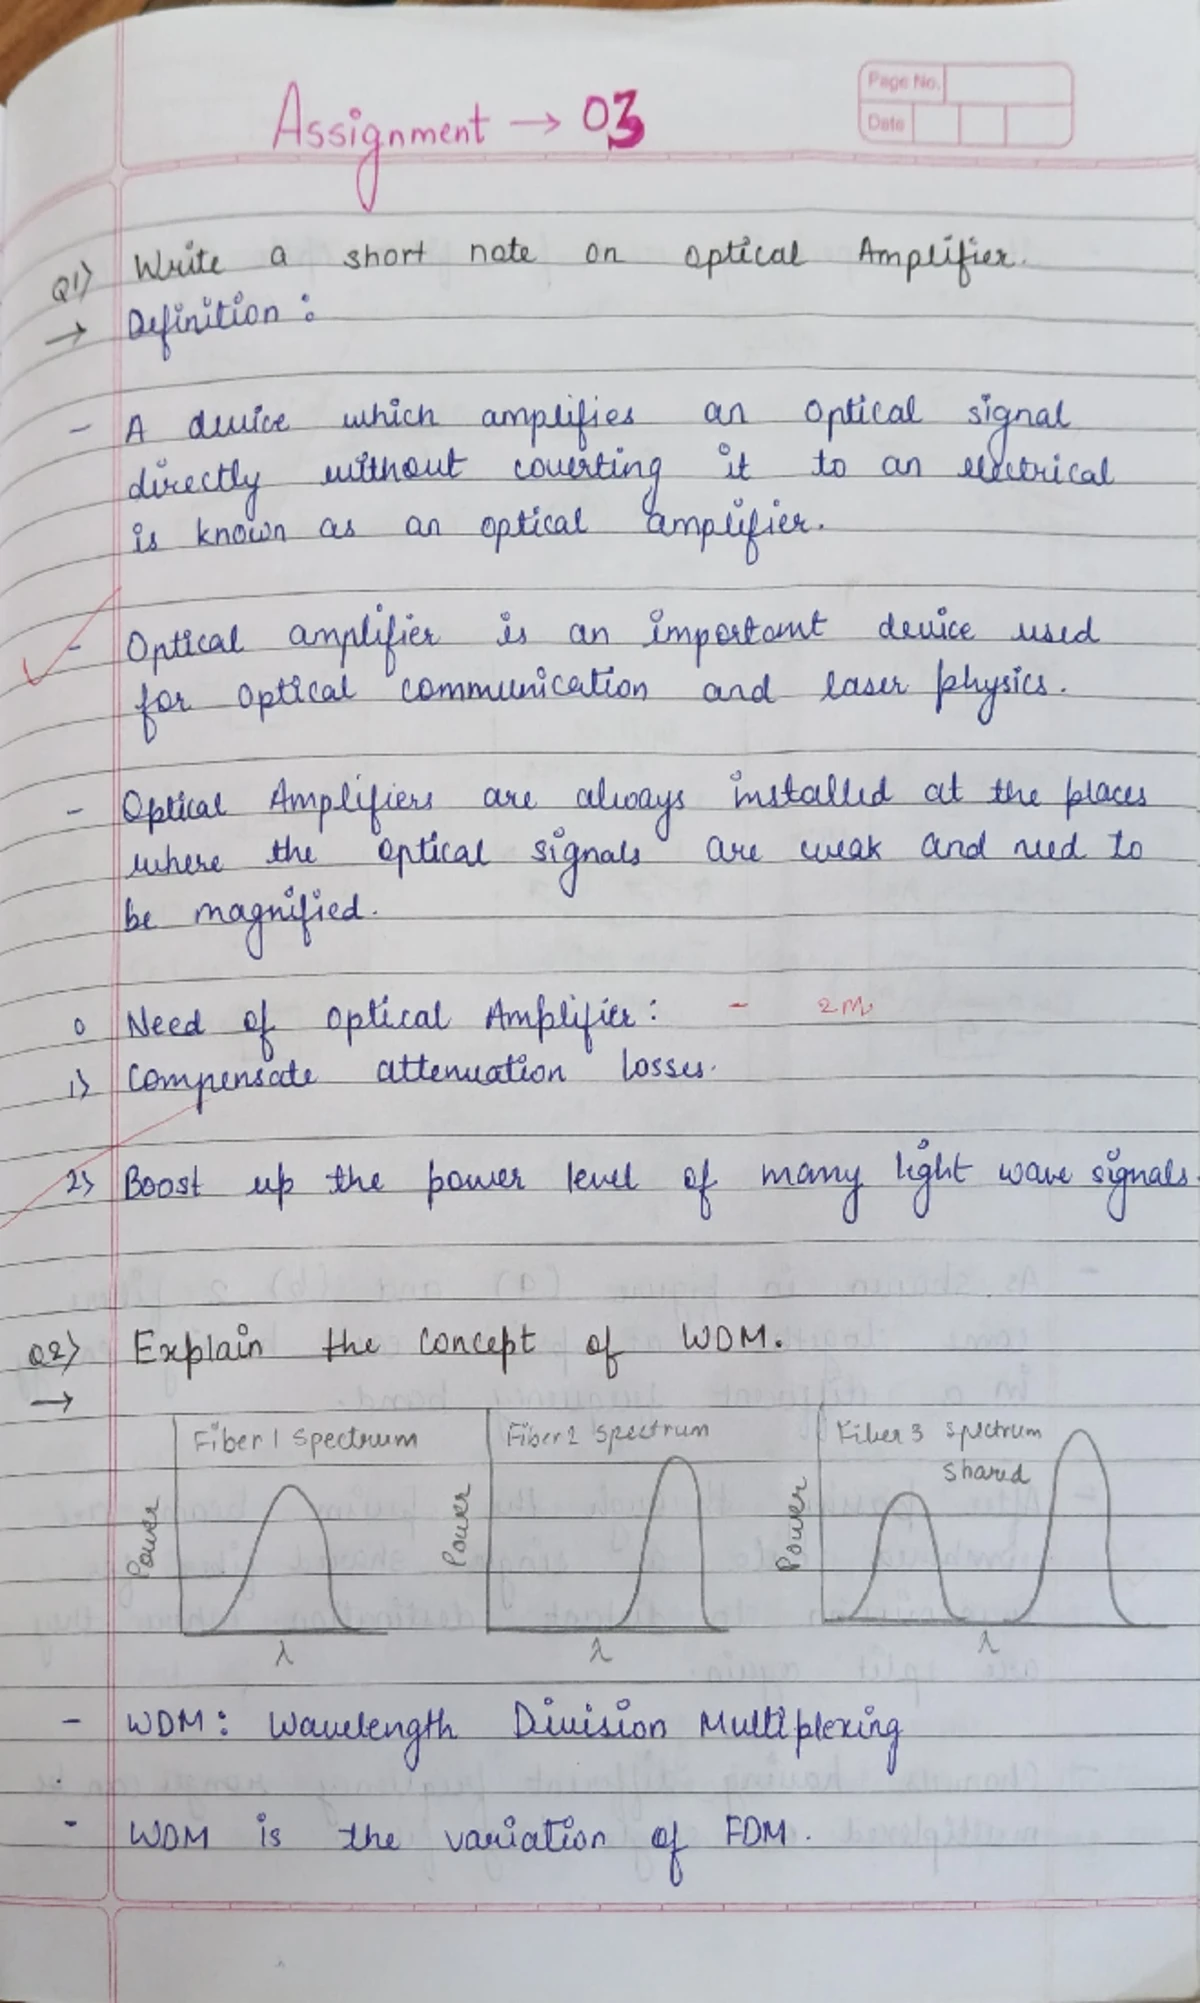 Page No.
Date
Assignment → 03
Q1) Write a short note on optical Amplifier.
→ Definition :
- A device which amplifies an optical signal
directly without coverting it to an electrical
is known as an optical amplifier.
- Optical amplifier is an important device used
for optical communication and laser physics.
- Optical Amplifiers are always installed at the places
where the optical signals are weak and need to
be magnified.
o Need of optical Amplifier : - 2M
1) Compensate attenuation losses.
2) Boost up the power level of many light wave signals.
Q2) Explain the concept of WDM.
→
Fiber 1 Spectrum
Power
λ
Fiber 2 Spectrum
Power
λ
Fiber 3 Spectrum
Shared
Power
λ
- WDM : Wavelength Division Multiplexing
- WDM is the variation of FDM.